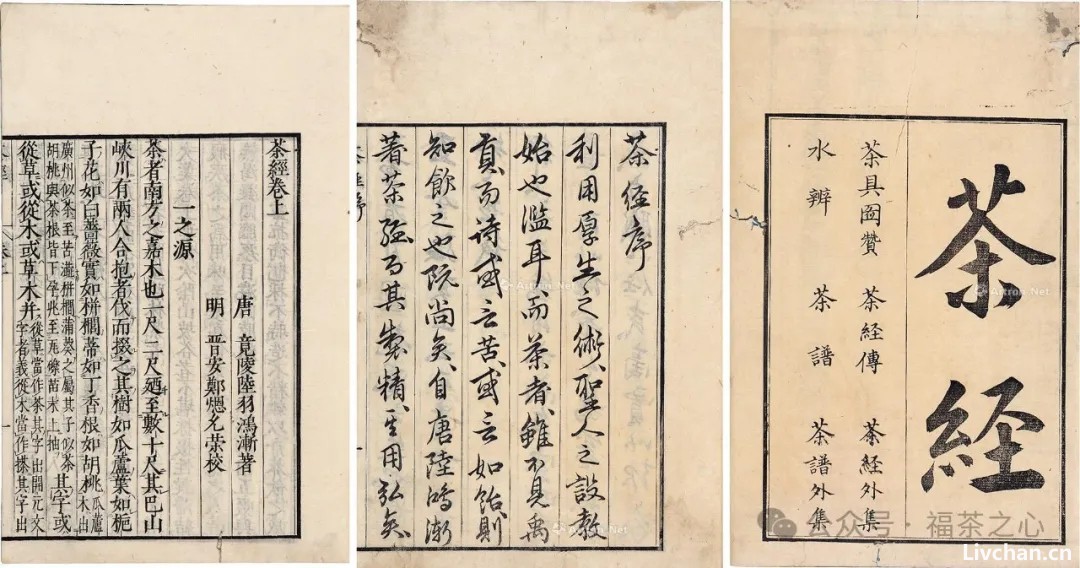 茶經卷上
一之源
唐 竟陵陸羽鴻漸著
明 晋安鄭熜允榮校
茶者南方之嘉木也一尺二尺廼至數十尺其巴山
峽川有兩人合抱者伐而掇之其樹如瓜蘆葉如梔
子花如白薔薇實如栟櫚蒂如丁香根如胡桃瓜蘆木出
廣州似茶至苦澁栟櫚蒲葵之屬其子似茶
胡桃與茶根皆下孕兆至瓦礫苗木上抽其字或
從草或從木或草木并從草當作茶其字出開元文
字者義從木當作搽其字出
茶経序
利用厚生之術聖人之設教
始也濫耳而茶者雖不見禹
貢而诗或云苦或云如飴則
知飲之也既尚矣自唐陸鴻漸
著茶經而其製精其用弘矣
茶経
茶具圖贊 茶経傳 茶経外集
水辨 茶譜 茶譜外集
公众号·福茶之心
Livchan.cn